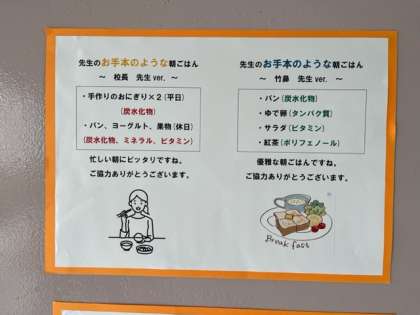 先生のお手本のような朝ごはん
～ 校長 先生 ver. ～
・手作りのおにぎり×２(平日)
(炭水化物)
・パン、ヨーグルト、果物(休日)
(炭水化物、ミネラル、ビタミン)
忙しい朝にピッタリですね。
ご協力ありがとうございます。
先生のお手本のような朝ごはん
～ 竹鼻 先生 ver. ～
・パン(炭水化物)
・ゆで卵(タンパク質)
・サラダ(ビタミン)
・紅茶(ポリフェノール)
優雅な朝ごはんですね。
ご協力ありがとうございます。
Breakfast